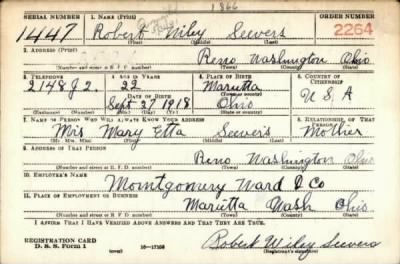 1866
SERIAL NUMBER 1. NAME (Print) ORDER NUMBER
1447 Robert Wiley Seevers 2264
(First) (Middle) (Last)
2. ADDRESS (Print)
Reno Washington Ohio
(Number and street or R. F. D. number) (Town) (County) (State)
3. TELEPHONE 4. AGE IN YEARS 5. PLACE OF BIRTH 6. COUNTRY OF CITIZENSHIP
2148 J 2. 22 Marietta
DATE OF BIRTH (Town or county)
Sept 27 1918 Ohio U S A
(Exchange) (Number) (Mo.) (Day) (Yr.) (State or country)
7. NAME OF PERSON WHO WILL ALWAYS KNOW YOUR ADDRESS 8. RELATIONSHIP OF THAT PERSON
Mrs Mary Etta Seevers Mother
(Mr., Mrs., Miss) (First) (Middle) (Last)
9. ADDRESS OF THAT PERSON
Reno Washington Ohio
(Number and street or R. F. D. number) (Town) (County) (State)
10. EMPLOYER'S NAME
Momtgomery Ward & Co
11. PLACE OF EMPLOYMENT OR BUSINESS
Marietta Wash Ohio
(Number and street or R. F. D. number) (Town) (County) (State)
I AFFIRM THAT I HAVE VERIFIED ABOVE ANSWERS AND THAT THEY ARE TRUE.
REGISTRATION CARD
D. S. S. Form 1 (over) 16-17105 Robert Wiley Seevers
(Registrant's signature)